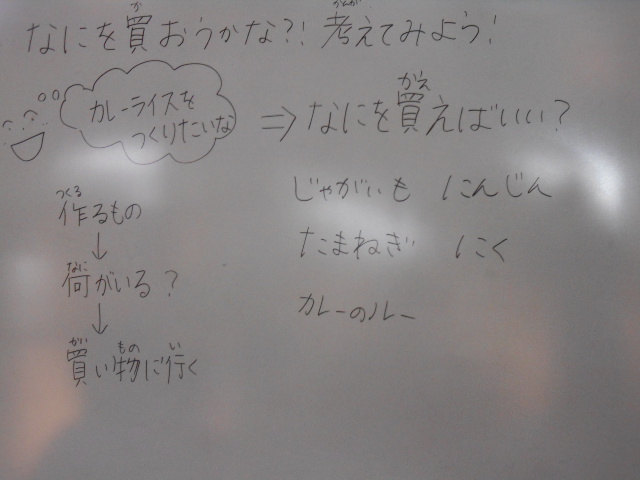 なにを買おうかな?! 考えてみよう!
カレーライスを
つくりたいな
⇒なにを買えばいい?
じゃがいも にんじん
たまねぎ にく
カレーのルー
作るもの
↓
何がいる?
↓
買い物に行く